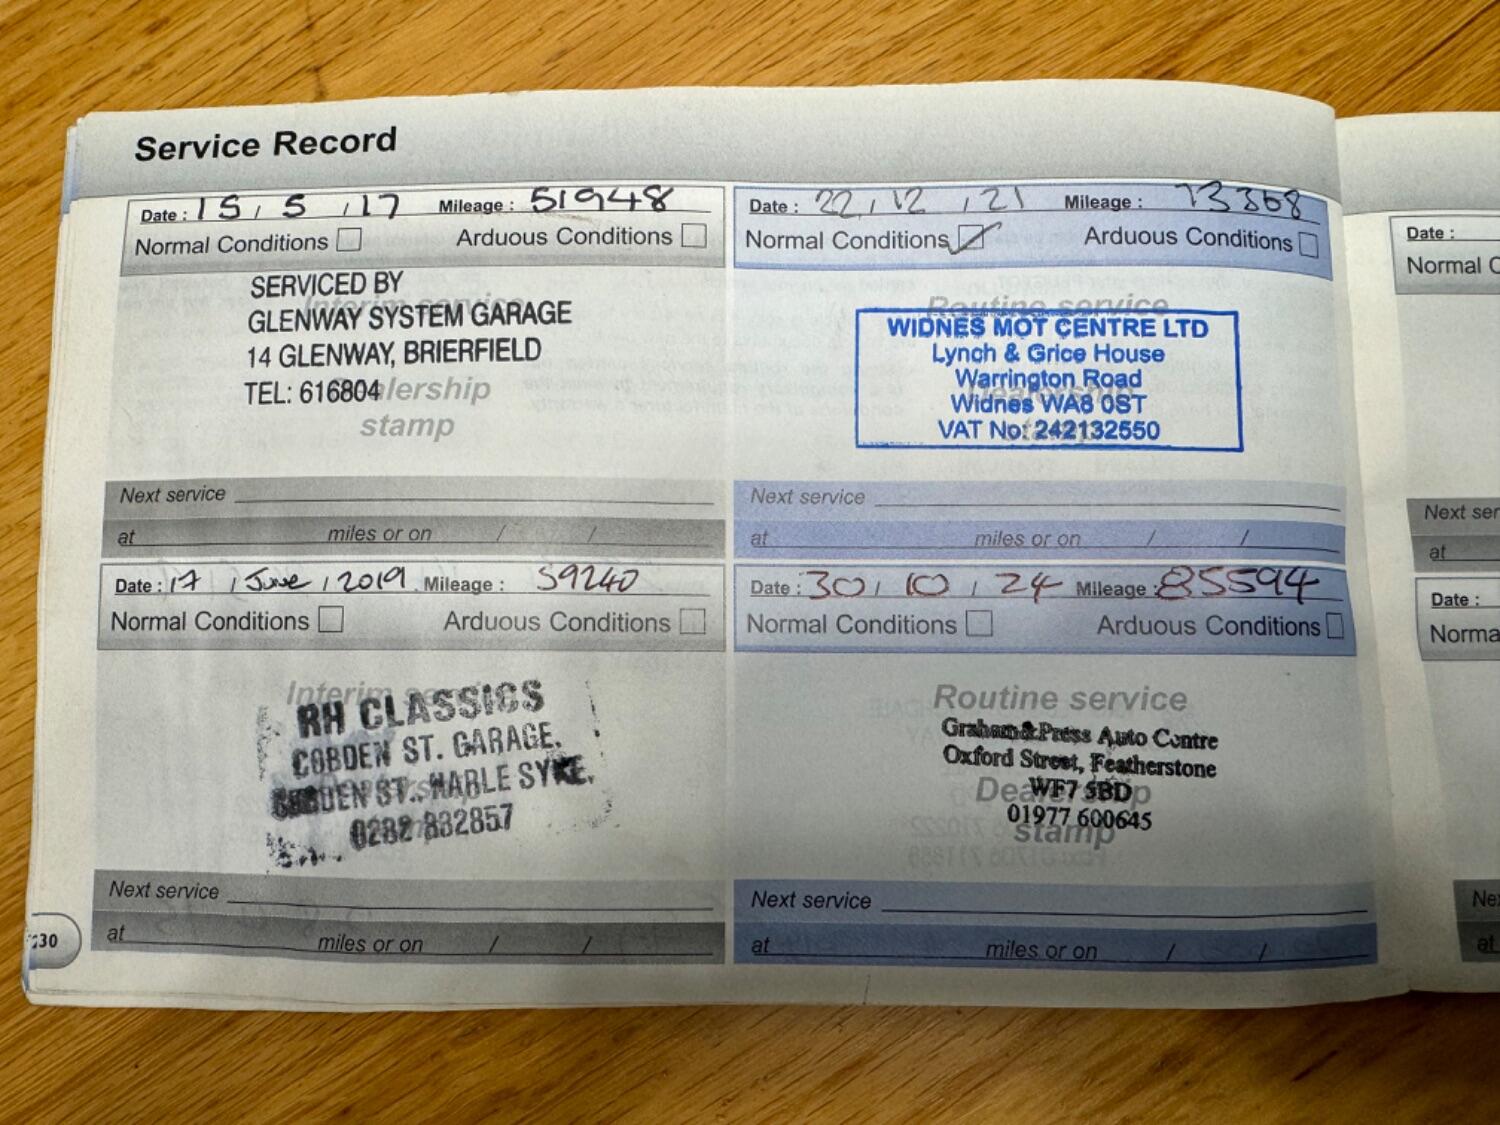 Service Record
Date : 15 / 5 / 17 Mileage : 51948
Normal Conditions Arduous Conditions
Interim service
SERVICED BY
GLENWAY SYSTEM GARAGE
14 GLENWAY, BRIERFIELD
TEL: 616804
Dealership
stamp
Next service
at miles or on / /
Date : 17 / June / 2019 Mileage : 59240
Normal Conditions Arduous Conditions
Interim service
RH CLASSICS
COBDEN ST. GARAGE,
COBDEN ST., HARLE SYKE.
0282 832857
Next service
at miles or on / /
230
Date : 22 / 12 / 21 Mileage : 73368
Normal Conditions Arduous Conditions
Routine service
WIDNES MOT CENTRE LTD
Lynch & Grice House
Warrington Road
Widnes WA8 0ST
VAT No: 242132550
Dealership
stamp
Next service
at miles or on / /
Date : 30 / 10 / 24 Mileage : 85594
Normal Conditions Arduous Conditions
Routine service
Graham & Press Auto Centre
Oxford Street, Featherstone
WF7 5BD
01977 600645
Dealership
stamp
Next service
at miles or on / /
Date :
Normal C
Next ser
at
Date :
Norma
Ne
at